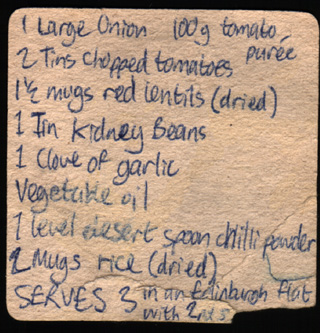 1 Large Onion 100g tomato
purée
2 Tins chopped tomatoes
1½ mugs red lentils (dried)
1 Tin Kidney Beans
1 Clove of garlic
Vegetable oil
1 level desert spoon chilli powder
2 Mugs rice (dried)
SERVES 3 in an Edinburgh flat
with